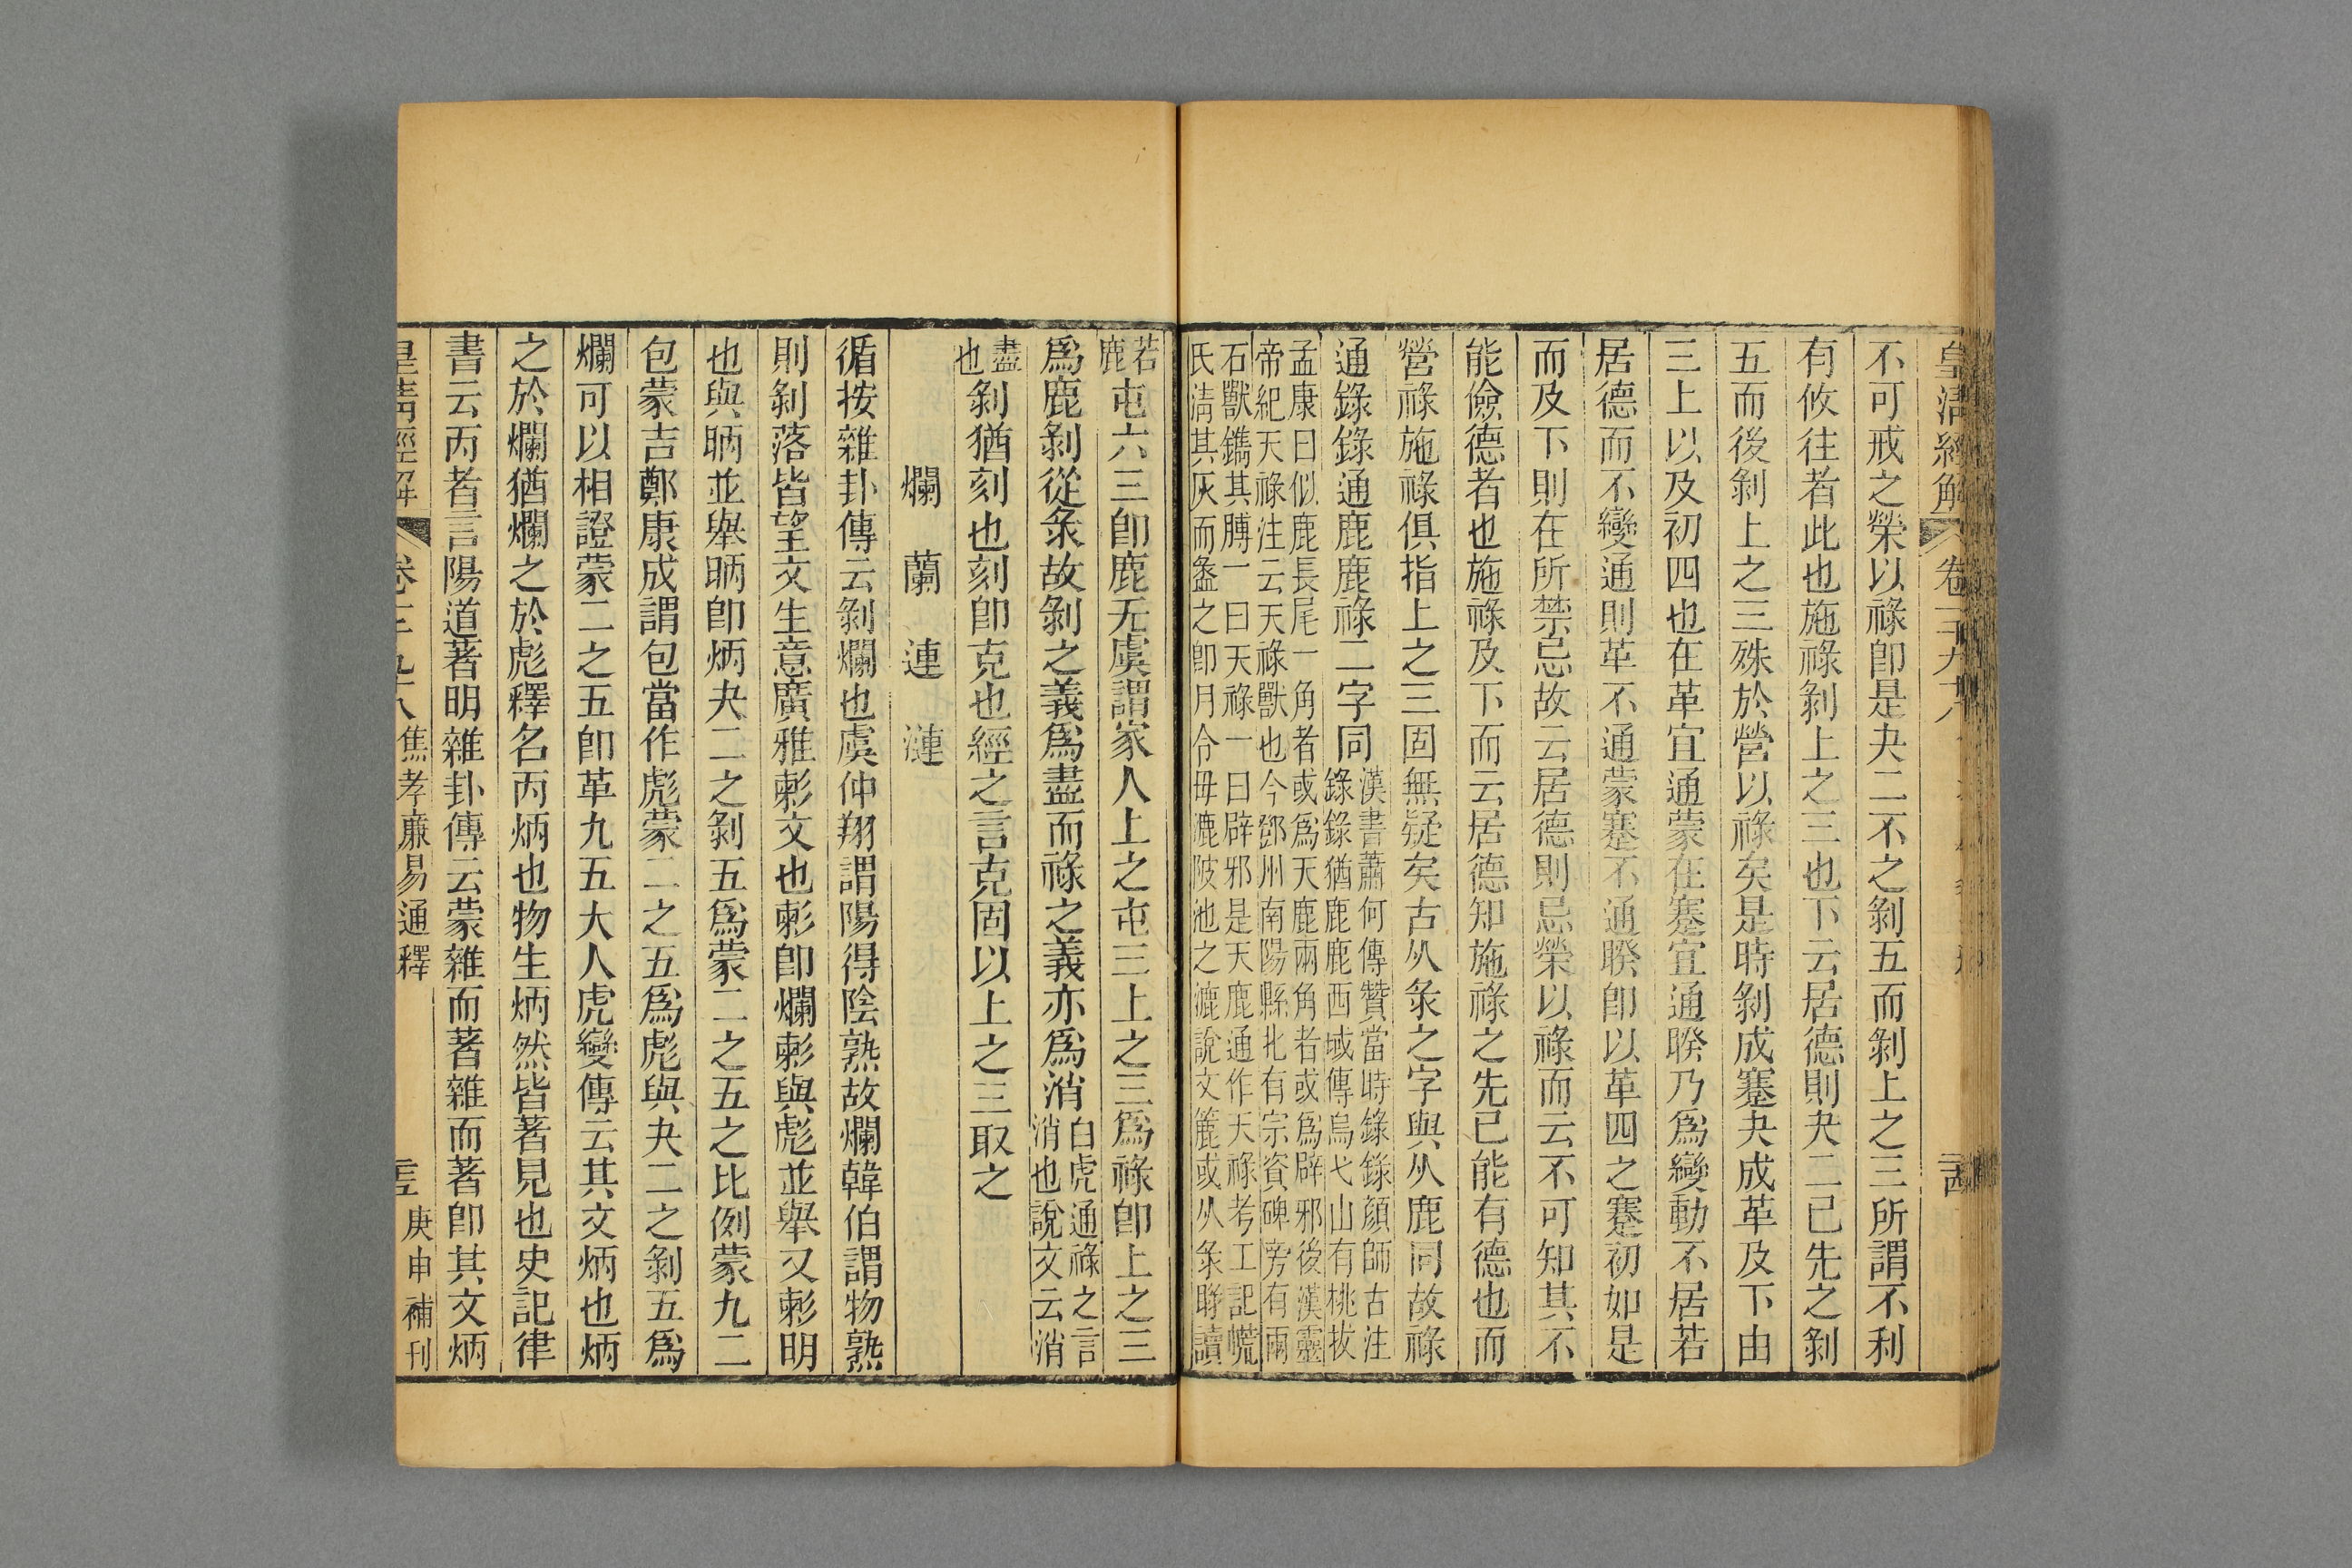 皇清經解 卷
不可戒之榮以祿卽是夬二不之剝五而剝上之三所謂不利
有攸往者此也施祿剝上之三也下云居德則夬二已先之剝
五而後剝上之三殊於營以祿矣是時剝成蹇夬成革及下由
三上以及初四也在革宜通蒙在蹇宜通睽乃爲變動不居若
居德而不變通則革不通蒙蹇不通睽卽以革四之蹇初如是
而及下則在所禁忌故云居德則忌榮以祿而云不可知其不
能儉德者也施祿及下而云居德知施祿之先已能有德也而
營祿施祿俱指上之三固無疑矣古从彔之字與从鹿同故祿
通錄錄通鹿鹿祿二字同漢書蕭何傳贊當時錄錄顏師古注
錄錄猶鹿鹿西域傳烏弋山有桃拔
孟康曰似鹿長尾一角者或爲天鹿兩角者或爲辟邪後漢靈
帝紀天祿注云天祿獸也今鄧州南陽縣北有宗資碑旁有兩
石獸鐫其膊一曰天祿一曰辟邪是天鹿通作天祿考工記㡛
氏淸其灰而盝之卽月令毋漉陂池之漉說文簏或从彔聯讀
若
鹿屯六三卽鹿无虞謂家人上之屯三上之三爲祿卽上之三
爲鹿剝從彔故剝之義爲盡而祿之義亦爲消白虎通祿之言
消也說文云消
盡
也剝猶刻也刻卽克也經之言克固以上之三取之
爛 蘭 連 漣
循按雜卦傳云剝爛也虞仲翔謂陽得陰孰故爛韓伯謂物熟
則剝落皆望文生意廣雅㓨文也㓨卽爛㓨與彪並舉又㓨明
也與昞並舉昞卽炳夬二之剝五爲蒙二之五之比例蒙九二
包蒙吉鄭康成謂包當作彪蒙二之五爲彪與夬二之剝五爲
爛可以相證蒙二之五卽革九五大人虎變傳云其文炳也炳
之於爛猶爛之於彪釋名丙炳也物生炳然皆著見也史記律
書云丙者言陽道著明雜卦傳云蒙雜而著雜而著卽其文炳
皇清經解 卷 焦孝廉易通釋 庚申補刊